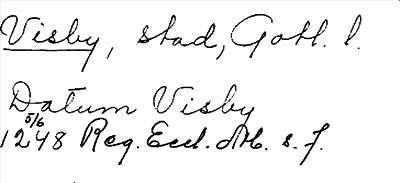 Visby, stad, Gotl. l.
Datum Visby
5/6
1248 Reg. Eccl. s. f.